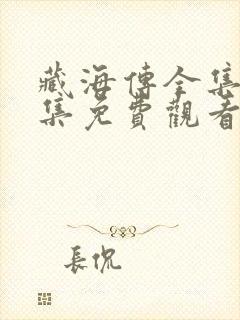 藏海傳全集
集免費觀看
長侃